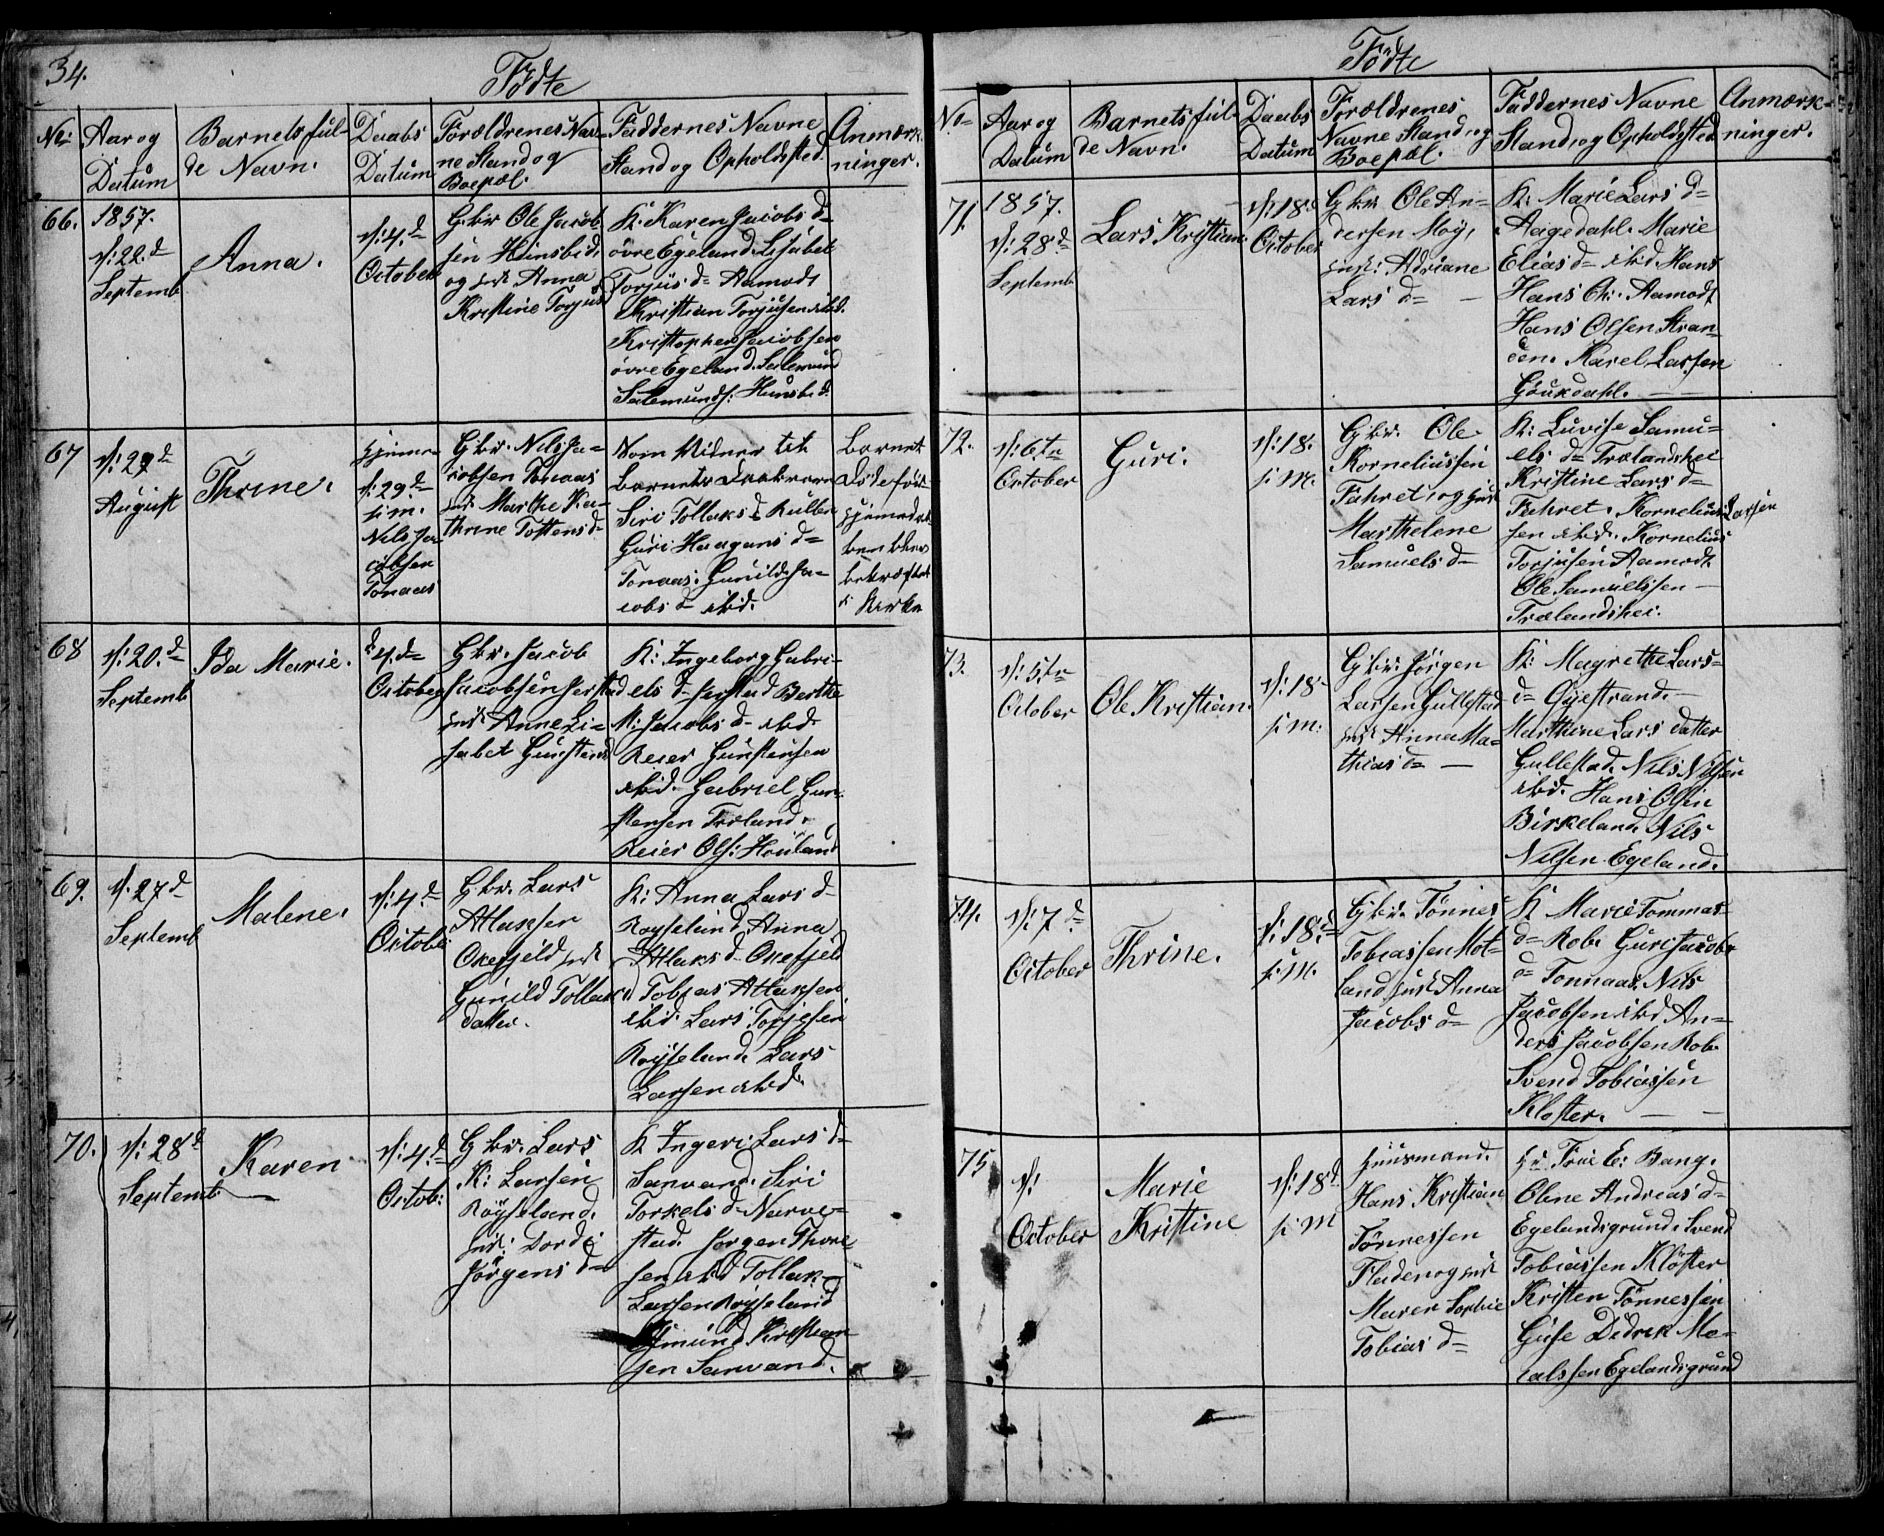 34.
Födte
No: Aar og Datum
Barnets ful-
de Navn.
Daabs
Datum
Forældrenes Nav-
ne Stand og
Boepæl.
Faddernes Navne
Stand og Opholdsted
Anmærk-
ninger.
66.
1857.
d: 22.d
Septemb
Anna.
d: 4.d
October
Gbr Ole Jacob
sen Hunsbed,
og Anna
Kristine Torjus
K: Karen Jacobs d=
övre Egeland. Lisabet
Torjus d= Aamodt
Kristian Torjusen ibid.
Kristopher Jacobsen
övre Egeland. Salemund
Salemunds: Hunsbed
67
d: 29d=
August
Thrine.
hjemme
d: 29.d=
s: m:
Nils Ja-
cobsen
Tonaas
Gbr. Nils Ja-
cobsen Tonaas
Marthe Ka-
thrine Tostens d=
Som Vidner til
Barnets
Siri Tollaks d
Guri Haagans d=
Tonaas. Gunild Ja-
cobs d= ibid.
Barnet
hjemmed
ben blev
bekræftet
i Kirken
68
d: 20.d=
Septemb
Ida Marie.
d 4.d=
October
Gbr. Jacob
Jacobsen Jerstad
Anne Li-
sabet Gunstens
K: Ingeborg Gabri-
els d= Jerstad Berthe
M: Jacobs d= ibid.
Reier Gunstensen
ibid. Gabriel Gun-
stensen Træland.
Reier Ols: Houland
69.
d. 27d
Septemb
Malene.
d: 4.d
Octobe
Gbr. Lars
Atlaksen
Okefjeld
Gunild Tollaks
datter.
K: Anna Lars d=
Röyseland Anna
Atlaks d= Okefjeld
Tobias Atlaksen
ibid. Lars Torjesen
Röyseland. Lars
Larsen ibid.
70.
d: 28d
Septemb
Karen
d: 4.d
Octob:
Gbr. Lars
K: Larsen
Röyseland.
Dordi
Jörgens d=
K Ingeri Lars d=
Sanvand. Siri
Torkels d= Narve-
stad. Jörgen Thore
sen ibid Tollak
Larsen Röyseland
Osmund Kristian
sen Sanvand.
Födte
No=
Aar og
Datum
Barnets ful-
de Navn.
Daabs
Datum
Forældrenes
Navne Stand og
Boepæl.
Faddernes Navne
Stand og Opholdsted
Anmærk-
ninger.
71.
1857.
d: 28d
Septemb
Lars Kristian
d: 18d
October
Gbr. Ole An-
dersen Moy,
Adriane
Lars d= —
K: Marie Lars d=
Aagedahl. Marie
Elias d= ibid. Hans
Hans Chr. Aamodt
Hans Olsen Stran-
den. Karel Larsen
Goukdahl. —
72.
d: 6te
October
Guri.
d: 18.
s: M.
Gbr. Ole
Korneliussen
Fahret, og
Marthelene
Samuels d=
K: Luvise Samu-
els d= Trælandshei
Kristine Lars d=
Fahret. Kornelius Larsen
sen ibid. Kornelius
Torjusen Aamodt
Ole Samuelssen —
Trælandshei.
73.
d: 5te
October
Ole Kristian.
d: 18
s: m:
Gbr. Jörgen
Larsen Gullestad
Anna Ma-
thias d= —
K: Magrethe Lars-
d= Qujestrand. —
Marthine Lars datter
Gullestad. Nils Nilsen
ibid. Hans Olsen
Birkeland. Nils
Nilsen Egeland.
74.
d: 7d=
October
Thrine.
d: 18.d=
s: M.
Gbr. Tönnes
Tobiassen Mot-
land Anna
Jacobs d=
K Marie Tommas-
d= Rob. Guri Jacobs
d= Tonnaas. Nils
Jacobsen ibid An-
ders Jacobsen Rob.
Svend Tobiassen
Kloster. — —
75
d:
October
Marie
Kristine
d: 18d
s: M
Huusmand.
Hans Kristian
Tönnessen
Fladen og
Maren Sophie
Tobias d=
Fr: Frue E: Bang.
Oline Andreas d=
Egelandsgrund. Svend
Tobiassen Klöster
Kristen Tönnessen
Guse Didrik Ma-
Egelandsgrund